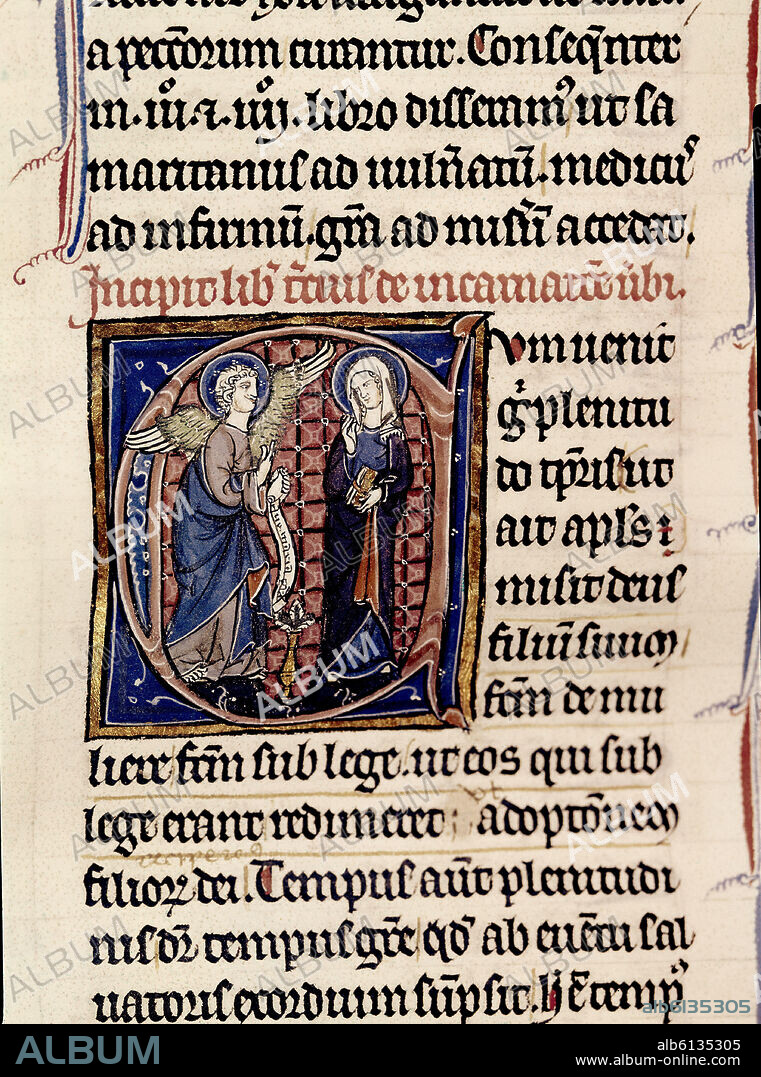 a pectorum curantur. Conseq̃nter
in .iii. ⁊ .iiij. libro disseram᷒ ut sa
maritanus ad uuln̄atū. medicus᷒
ad infirmū. gr̄a ad mis̄iā accedat.
Incipit lib̄ t̄cius de incarnatōe ūbi.
Cum uenit
g̊ plenitu
do tp̄ris ut
ait apl̄s:
misit deus
filiū suum
fc̄m de mu
liere fc̄m sub lege. ut eos qui sub
lege erant redimeret adoptōnem
filioꝝ dei. Tempus aūt plenitudi
nis dr̄ tempus gr̄e qd̄ ab euētu sal
uatoris exordium sūpsit. h̄ ē temp᷒
ALBUM
alb6135305
ALBUM
alb6135305
www.album-online.com